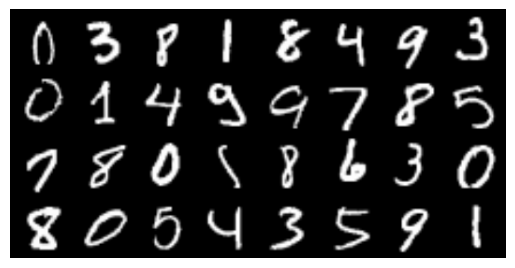 0 3 8 1 8 4 9 3
0 1 4 9 9 7 8 5
7 8 0 8 6 3 0
8 0 5 4 3 5 9 1